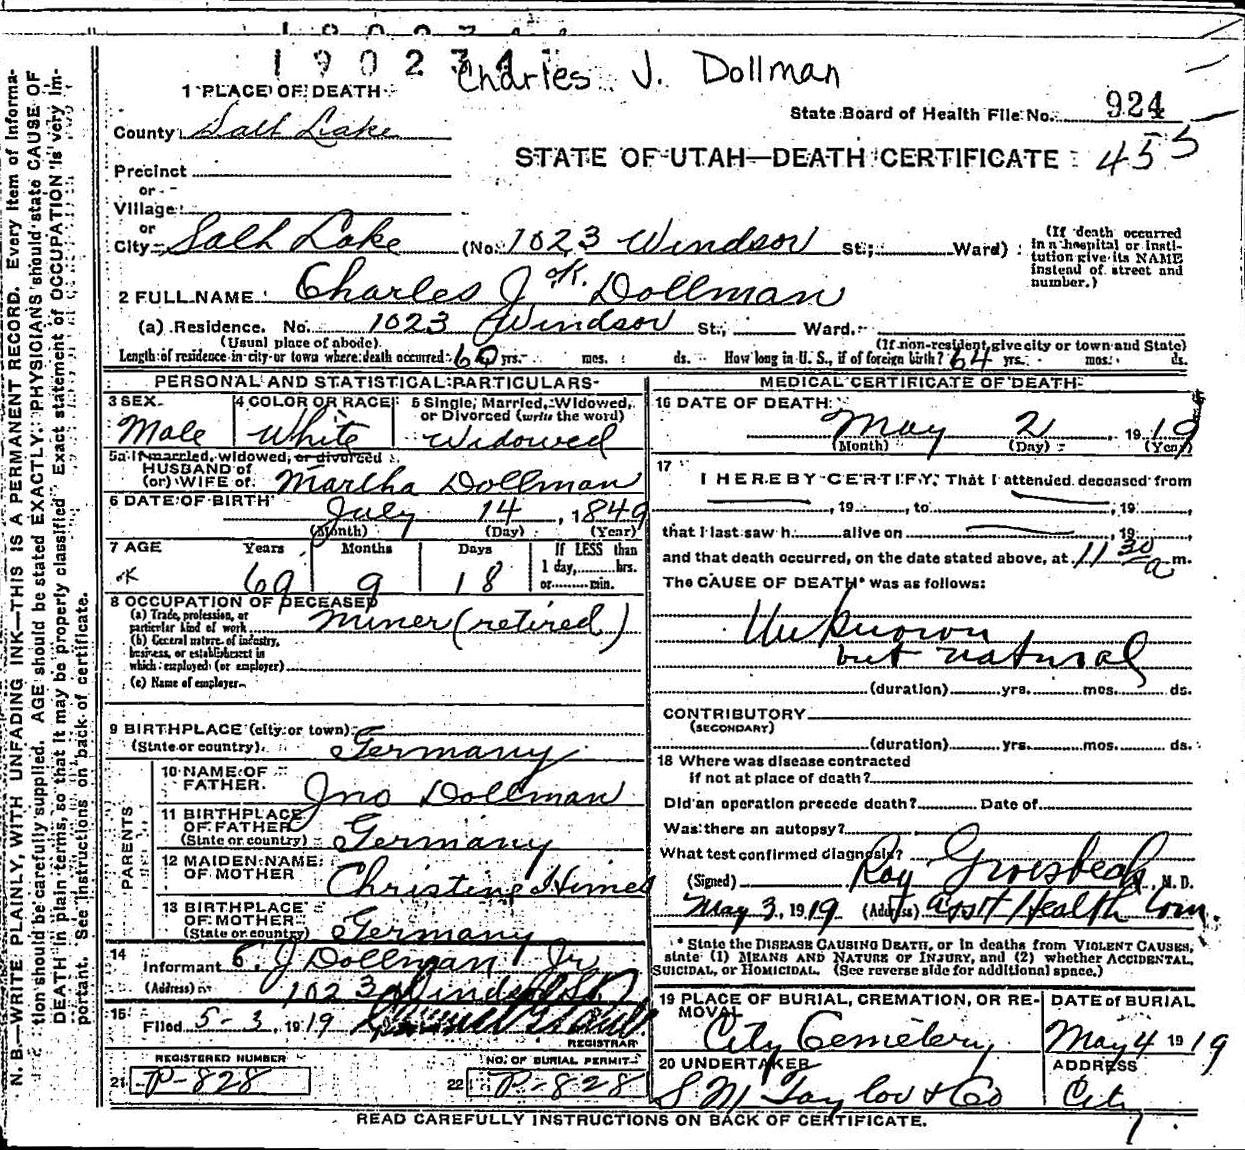 190274
Charles J. Dollman
1 PLACE OF DEATH
State Board of Health File No. 924
County Salt Lake
STATE OF UTAH—DEATH CERTIFICATE 455
Precinct
or
Village
or
City Salt Lake (No. 1023 Windsor St.; Ward)
(If death occurred in a hospital or institution give its NAME instead of street and number.)
2 FULL NAME Charles J ok. Dollman
(a) Residence. No. 1023 Windsor St., Ward.
(Usual place of abode) (If non-resident give city or town and State)
Length of residence in city or town where death occurred 60 yrs. mos. ds. How long in U. S., if of foreign birth? 64 yrs. mos. ds.
PERSONAL AND STATISTICAL PARTICULARS
3 SEX Male
4 COLOR OR RACE White
5 Single, Married, Widowed, or Divorced (write the word) Widowed
5a If married, widowed, or divorced
HUSBAND of
(or) WIFE of Martha Dollman
6 DATE OF BIRTH July 14, 1849
(Month) (Day) (Year)
7 AGE Years Months Days If LESS than
1 day, hrs.
or min.
ok 69 9 18
8 OCCUPATION OF DECEASED
(a) Trade, profession, or
particular kind of work Miner (retired)
(b) General nature of industry,
business, or establishment in
which employed (or employer)
(c) Name of employer
9 BIRTHPLACE (city or town)
(State or country) Germany
PARENTS
10 NAME OF FATHER Jno Dollman
11 BIRTHPLACE OF FATHER
(State or country) Germany
12 MAIDEN NAME OF MOTHER Christine Himes
13 BIRTHPLACE OF MOTHER
(State or country) Germany
14 Informant C. J Dollman Jr
(Address) 1023 Windsor St
15 Filed 5-3, 1919
REGISTRAR
REGISTERED NUMBER
21 P-828
NO. OF BURIAL PERMIT
22 P-828
MEDICAL CERTIFICATE OF DEATH
16 DATE OF DEATH May 2, 1919
(Month) (Day) (Year)
17 I HEREBY CERTIFY, That I attended deceased from
, 19 , to , 19 ,
that I last saw h alive on , 19 ,
and that death occurred, on the date stated above, at 11 30 a m.
The CAUSE OF DEATH* was as follows:
Unknown
but natural
(duration) yrs. mos. ds.
CONTRIBUTORY
(SECONDARY)
(duration) yrs. mos. ds.
18 Where was disease contracted
if not at place of death?
Did an operation precede death? Date of
Was there an autopsy?
What test confirmed diagnosis?
(Signed) Roy Groesbeck, M. D.
May 3, 1919 (Address) Asst Health Com.
* State the DISEASE CAUSING DEATH, or in deaths from VIOLENT CAUSES,
state (1) MEANS AND NATURE OF INJURY, and (2) whether ACCIDENTAL,
SUICIDAL, or HOMICIDAL. (See reverse side for additional space.)
19 PLACE OF BURIAL, CREMATION, OR REMOVAL City Cemetery
DATE of BURIAL May 4 1919
20 UNDERTAKER S M Taylor & Co
ADDRESS City
READ CAREFULLY INSTRUCTIONS ON BACK OF CERTIFICATE.
N. B.—WRITE PLAINLY, WITH UNFADING INK—THIS IS A PERMANENT RECORD. Every item of information should be carefully supplied. AGE should be stated EXACTLY. PHYSICIANS should state CAUSE OF DEATH in plain terms, so that it may be properly classified. Exact statement of OCCUPATION is very important. See instructions on back of certificate.